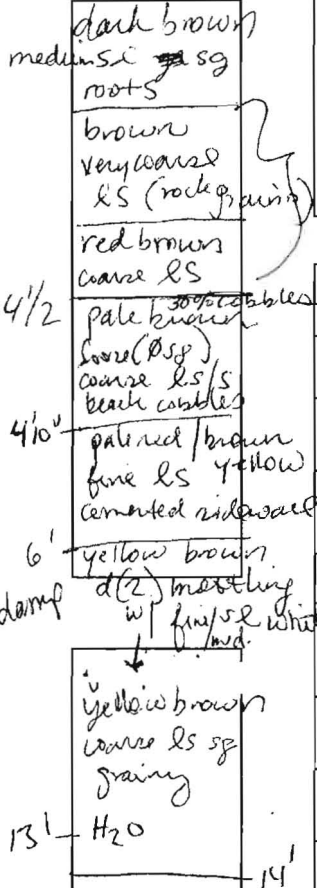 dark brown
medium sl sg
roots
brown
very coarse
ls (rock grains)
red brown
coarse ls
30% cobbles
4'/2 pale brown
loose (0sg)
coarse ls/s
beach cobbles
4'10" pale red/brown
yellow
fine ls
cemented sidewall
6' yellow brown
damp d(2) mottling
w fine/sl
med.
yellow brown
coarse ls sg
grainy
13' H2O
14'